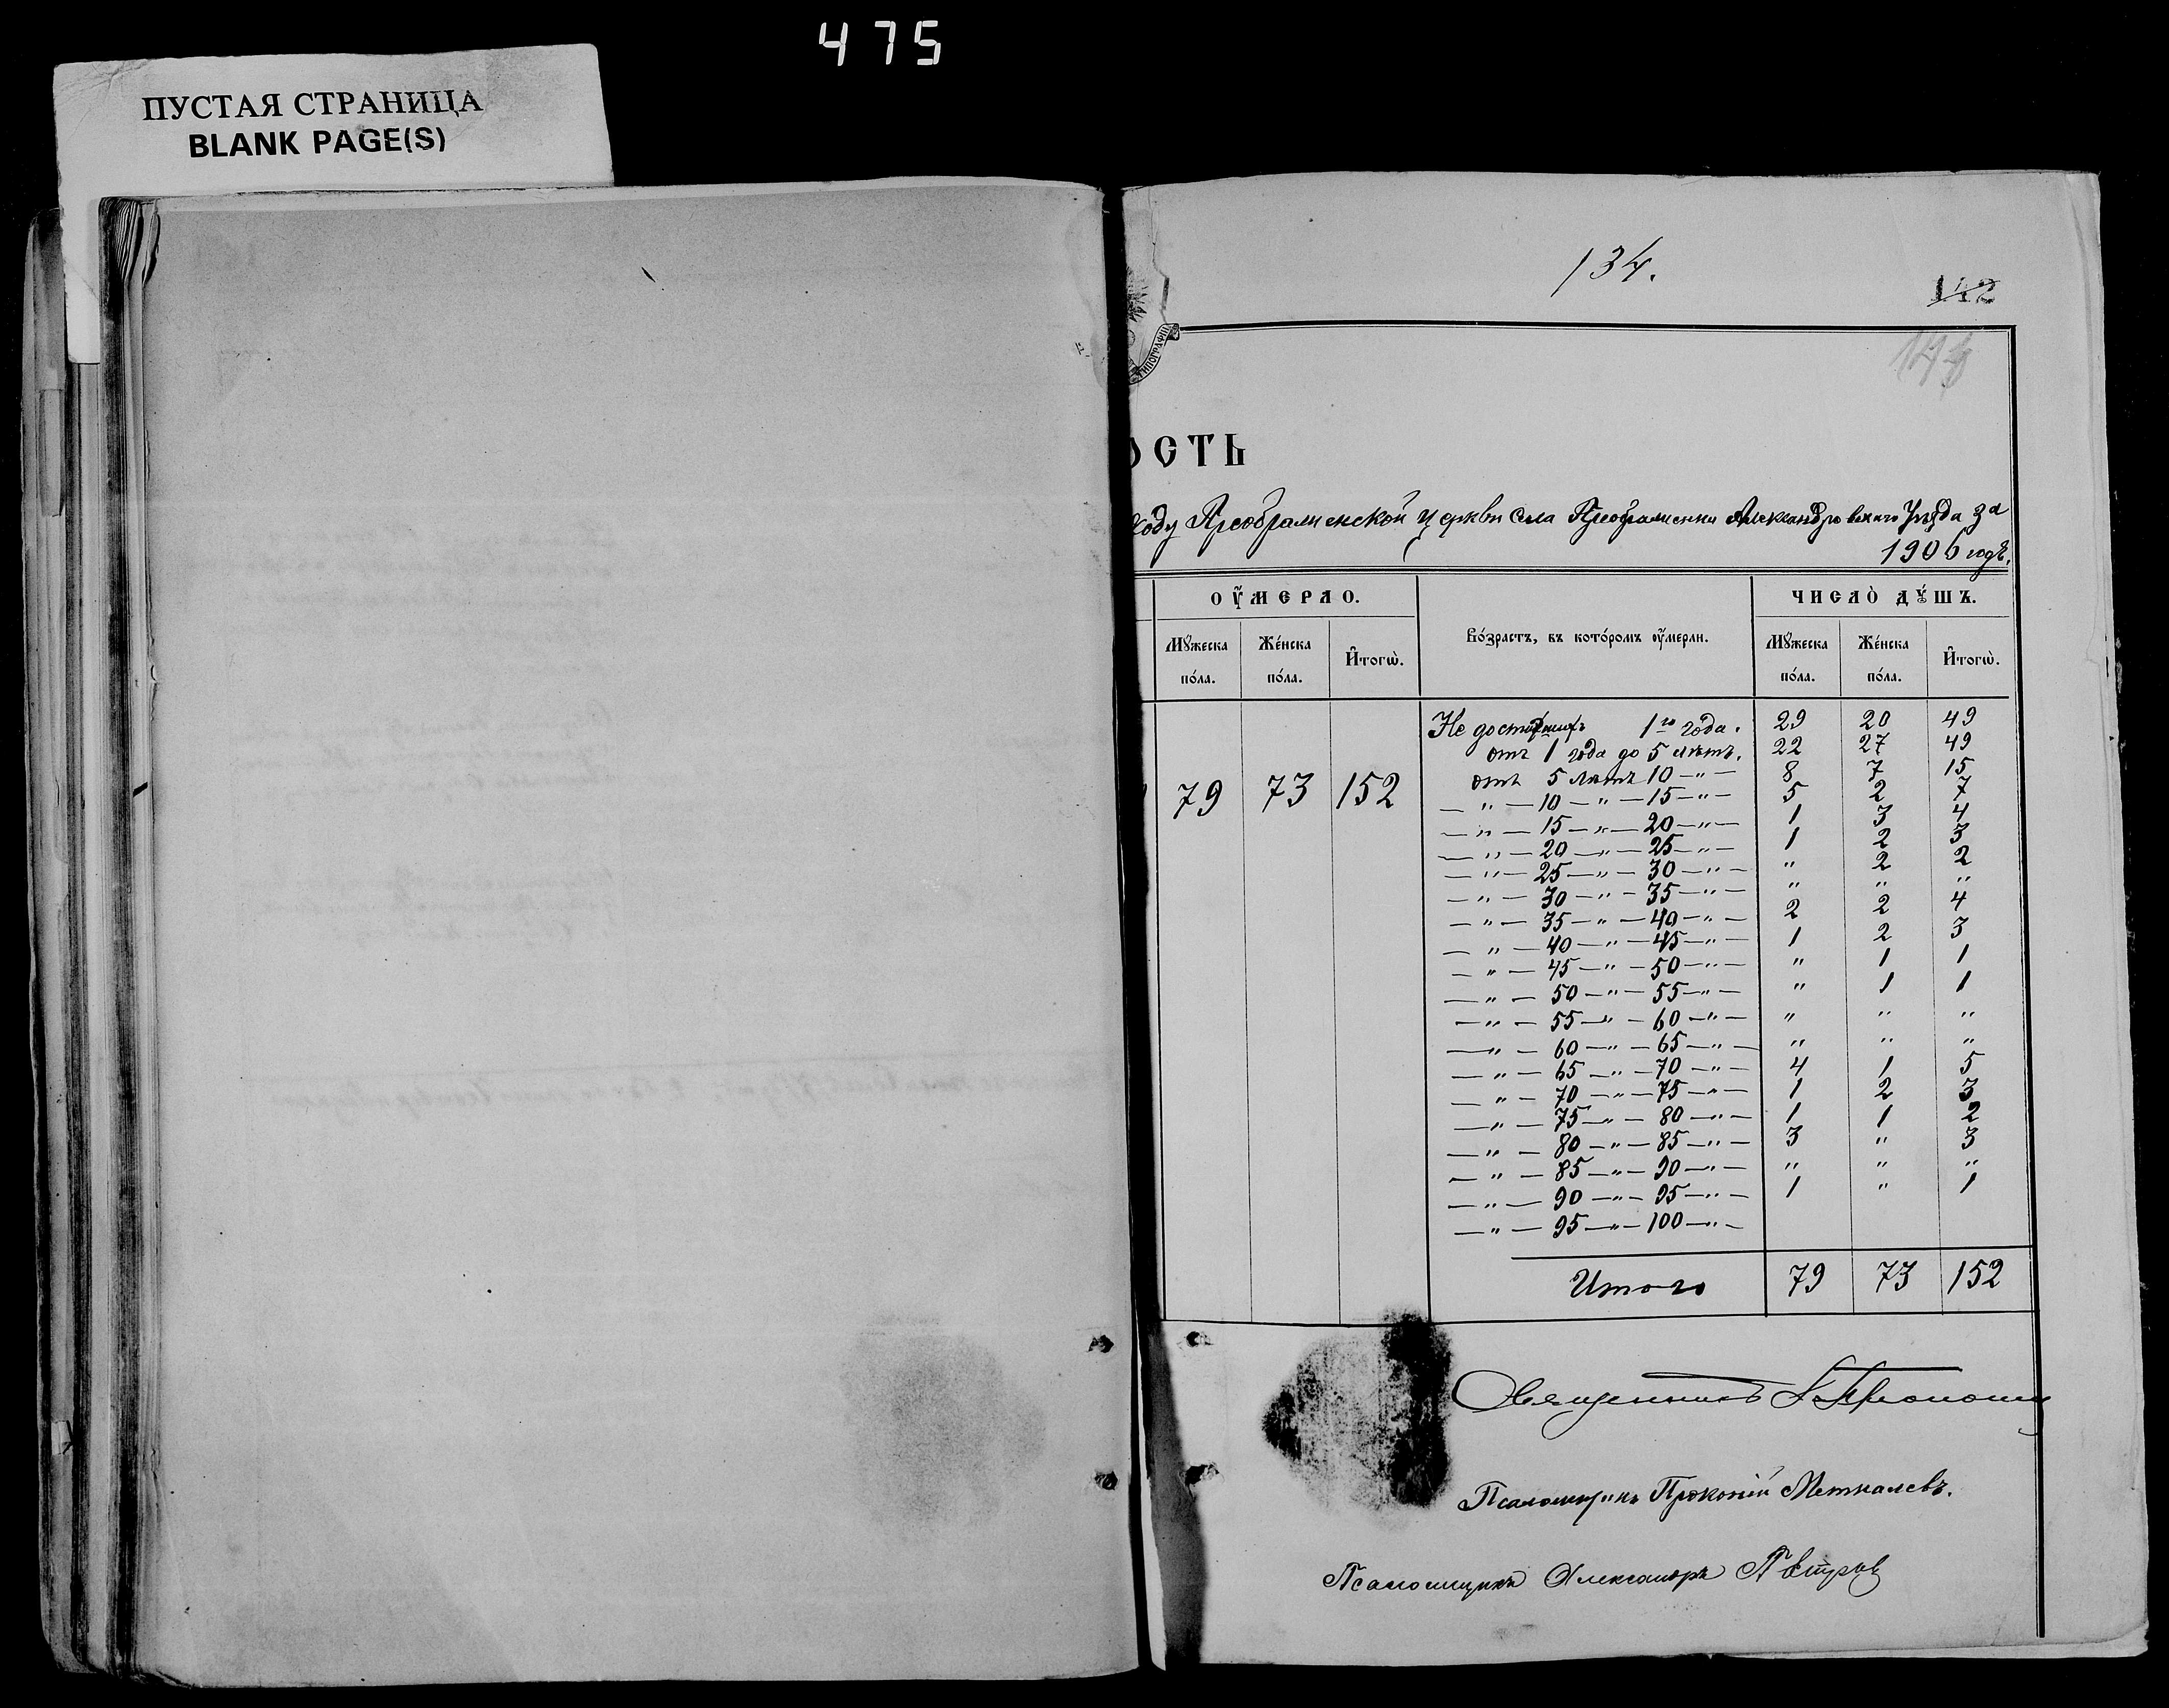 475
ПУСТАЯ СТРАНИЦА
BLANK PAGE(S)
134.
142
144
ТИПОГРАФІИ
ОСТЬ
ходу Преображенской церкви села Преображенки Александровскаго Уѣзда за
1906 годъ.
ОУМЕРЛО. ЧИСЛО ДУШЪ.
Мꙋжеска пола. Женска пола. Итогѡ. Возрастъ, въ которомъ оумерли. Мꙋжеска пола. Женска пола. Итогѡ.
Не достигшихъ 1го года. 29 20 49
отъ 1 года до 5 лѣтъ. 22 27 49
отъ 5 лѣтъ 10 — " — 8 7 15
79 73 152
— " — 10 — " — 15 — " — 5 2 7
— " — 15 — " — 20 — " — 1 3 4
— " — 20 — " — 25 — " — 1 2 3
— " — 25 — " — 30 — " — " 2 2
— " — 30 — " — 35 — " — " " "
— " — 35 — " — 40 — " — 2 2 4
— " — 40 — " — 45 — " — 1 2 3
— " — 45 — " — 50 — " — " 1 1
— " — 50 — " — 55 — " — " 1 1
— " — 55 — " — 60 — " — " " "
— " — 60 — " — 65 — " — " " "
— " — 65 — " — 70 — " — 4 1 5
— " — 70 — " — 75 — " — 1 2 3
— " — 75 — " — 80 — " — 1 1 2
— " — 80 — " — 85 — " — 3 " 3
— " — 85 — " — 90 — " — " " "
— " — 90 — " — 95 — " — 1 " 1
— " — 95 — " — 100 — " —
Итого 79 73 152
Священникъ
Псаломщикъ Прокопій Меткалевъ.
Псаломщикъ Александръ Петров